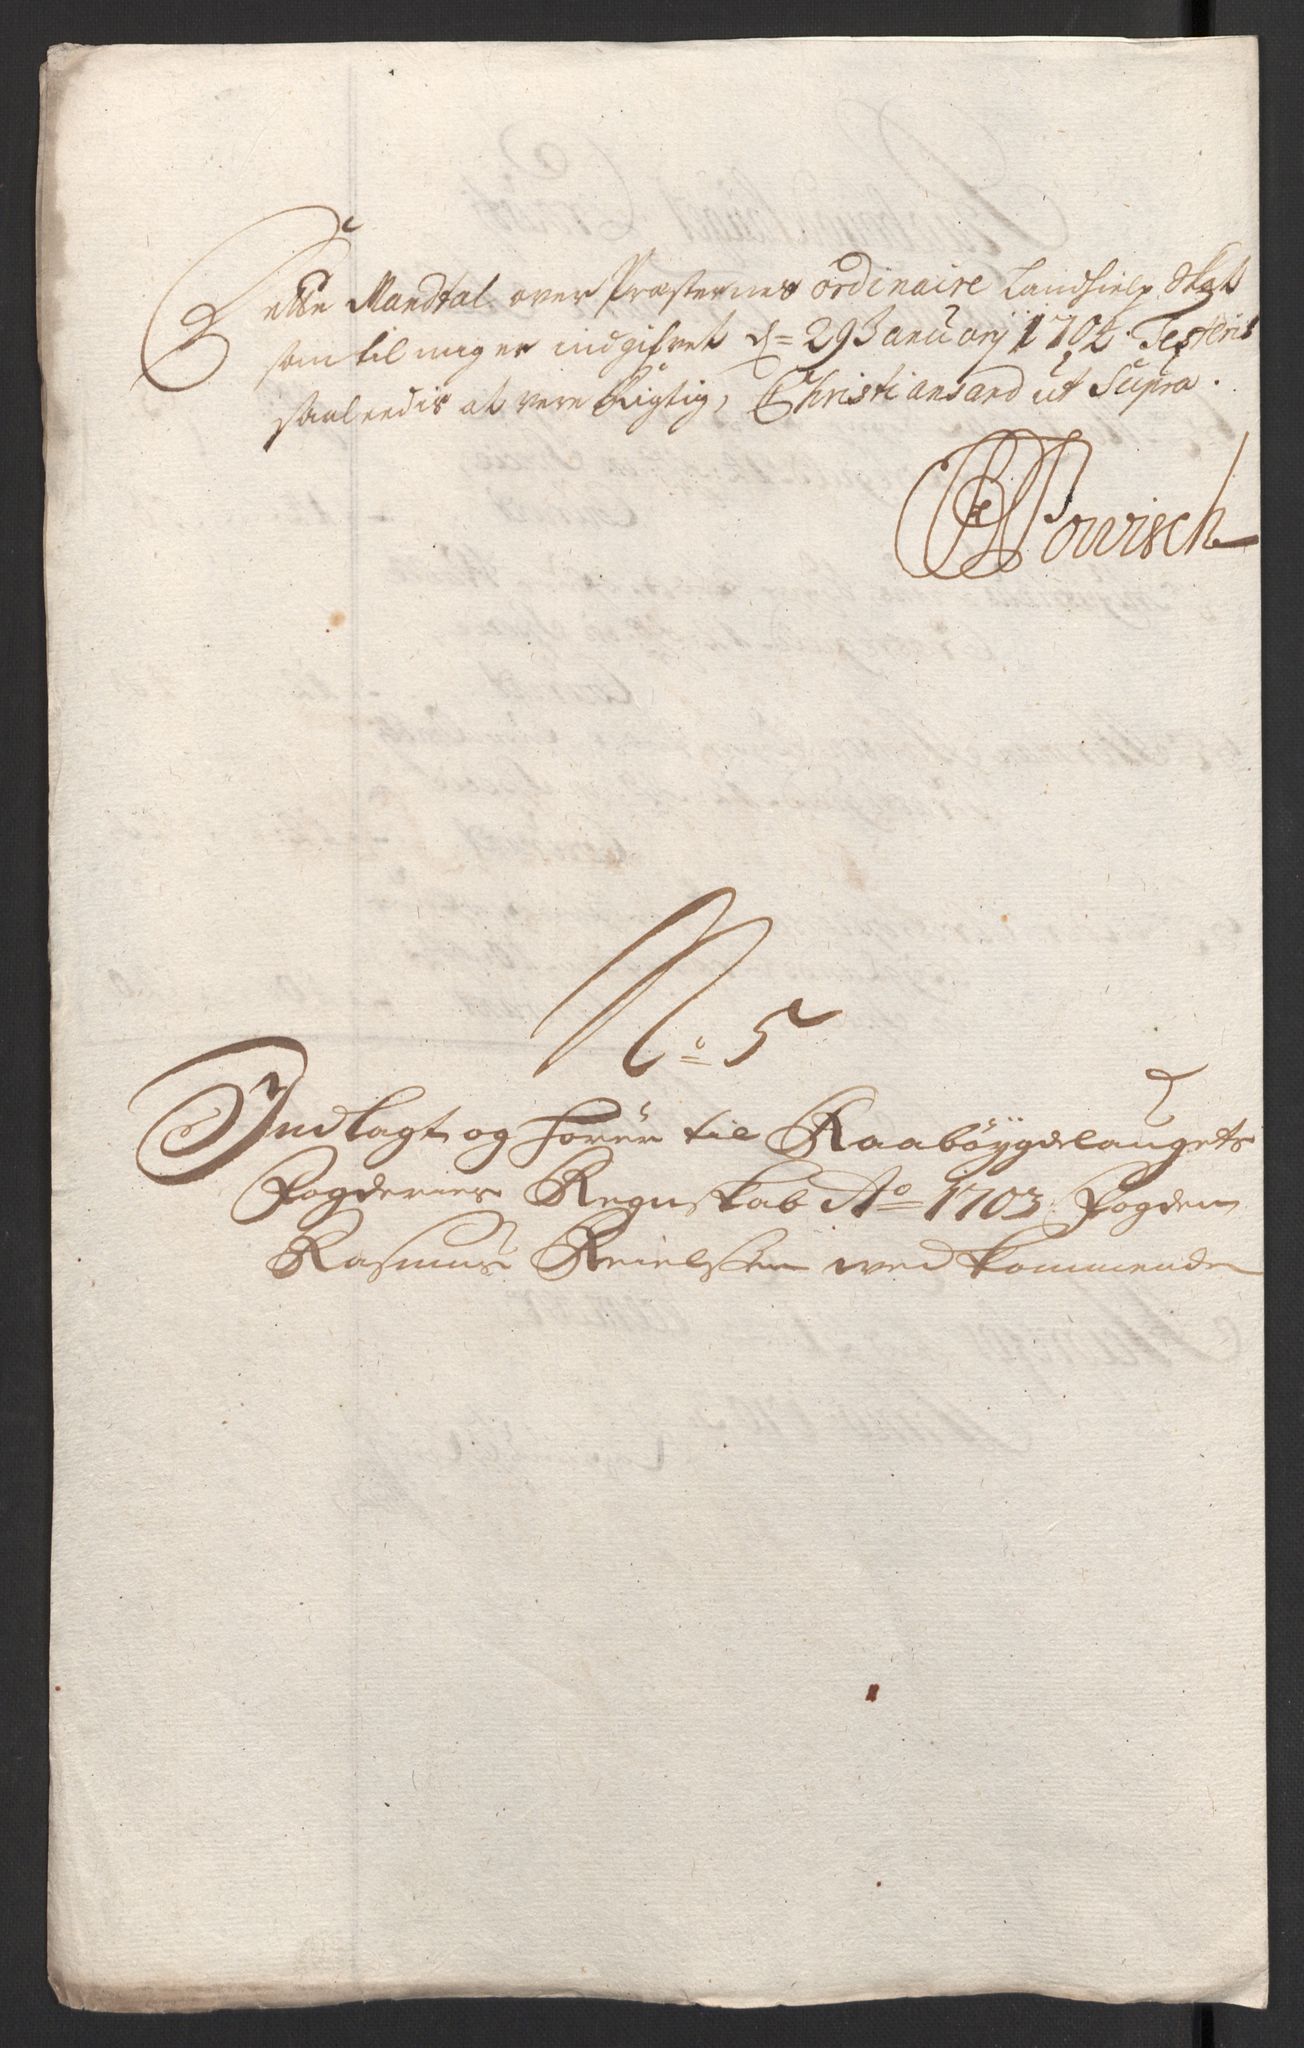 Dette Mandtal over Præsternes ordinaire Landhielp Skat
som til mig er indgifvet d= 29 Januarij 1704. Testeris
saaledis at vere Rigtig, Christiansand ut Supra.
Powisch
No. 5
Indlagt og hører til Raabøygdelaugets
Fogderies Regnskab Ao 1703 Fogden
Rasmus Keielsen ved kommende